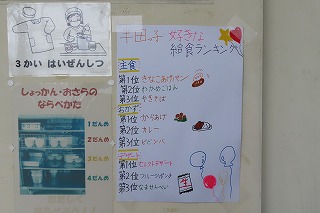 3かい はいぜんしつ
しょっかん・おさらの
ならべかた
1だんめ
2だんめ
3だんめ
4だんめ
半田っ子 好きな
給食ランキング
主食
第1位 きなこあげパン
第2位 わかめごはん
第3位 やきそば
おかず
第1位 からあげ
第2位 カレー
第3位 ビビンバ
デザート
第1位 セレクトデザート
第2位 フルーツポンチ
第3位